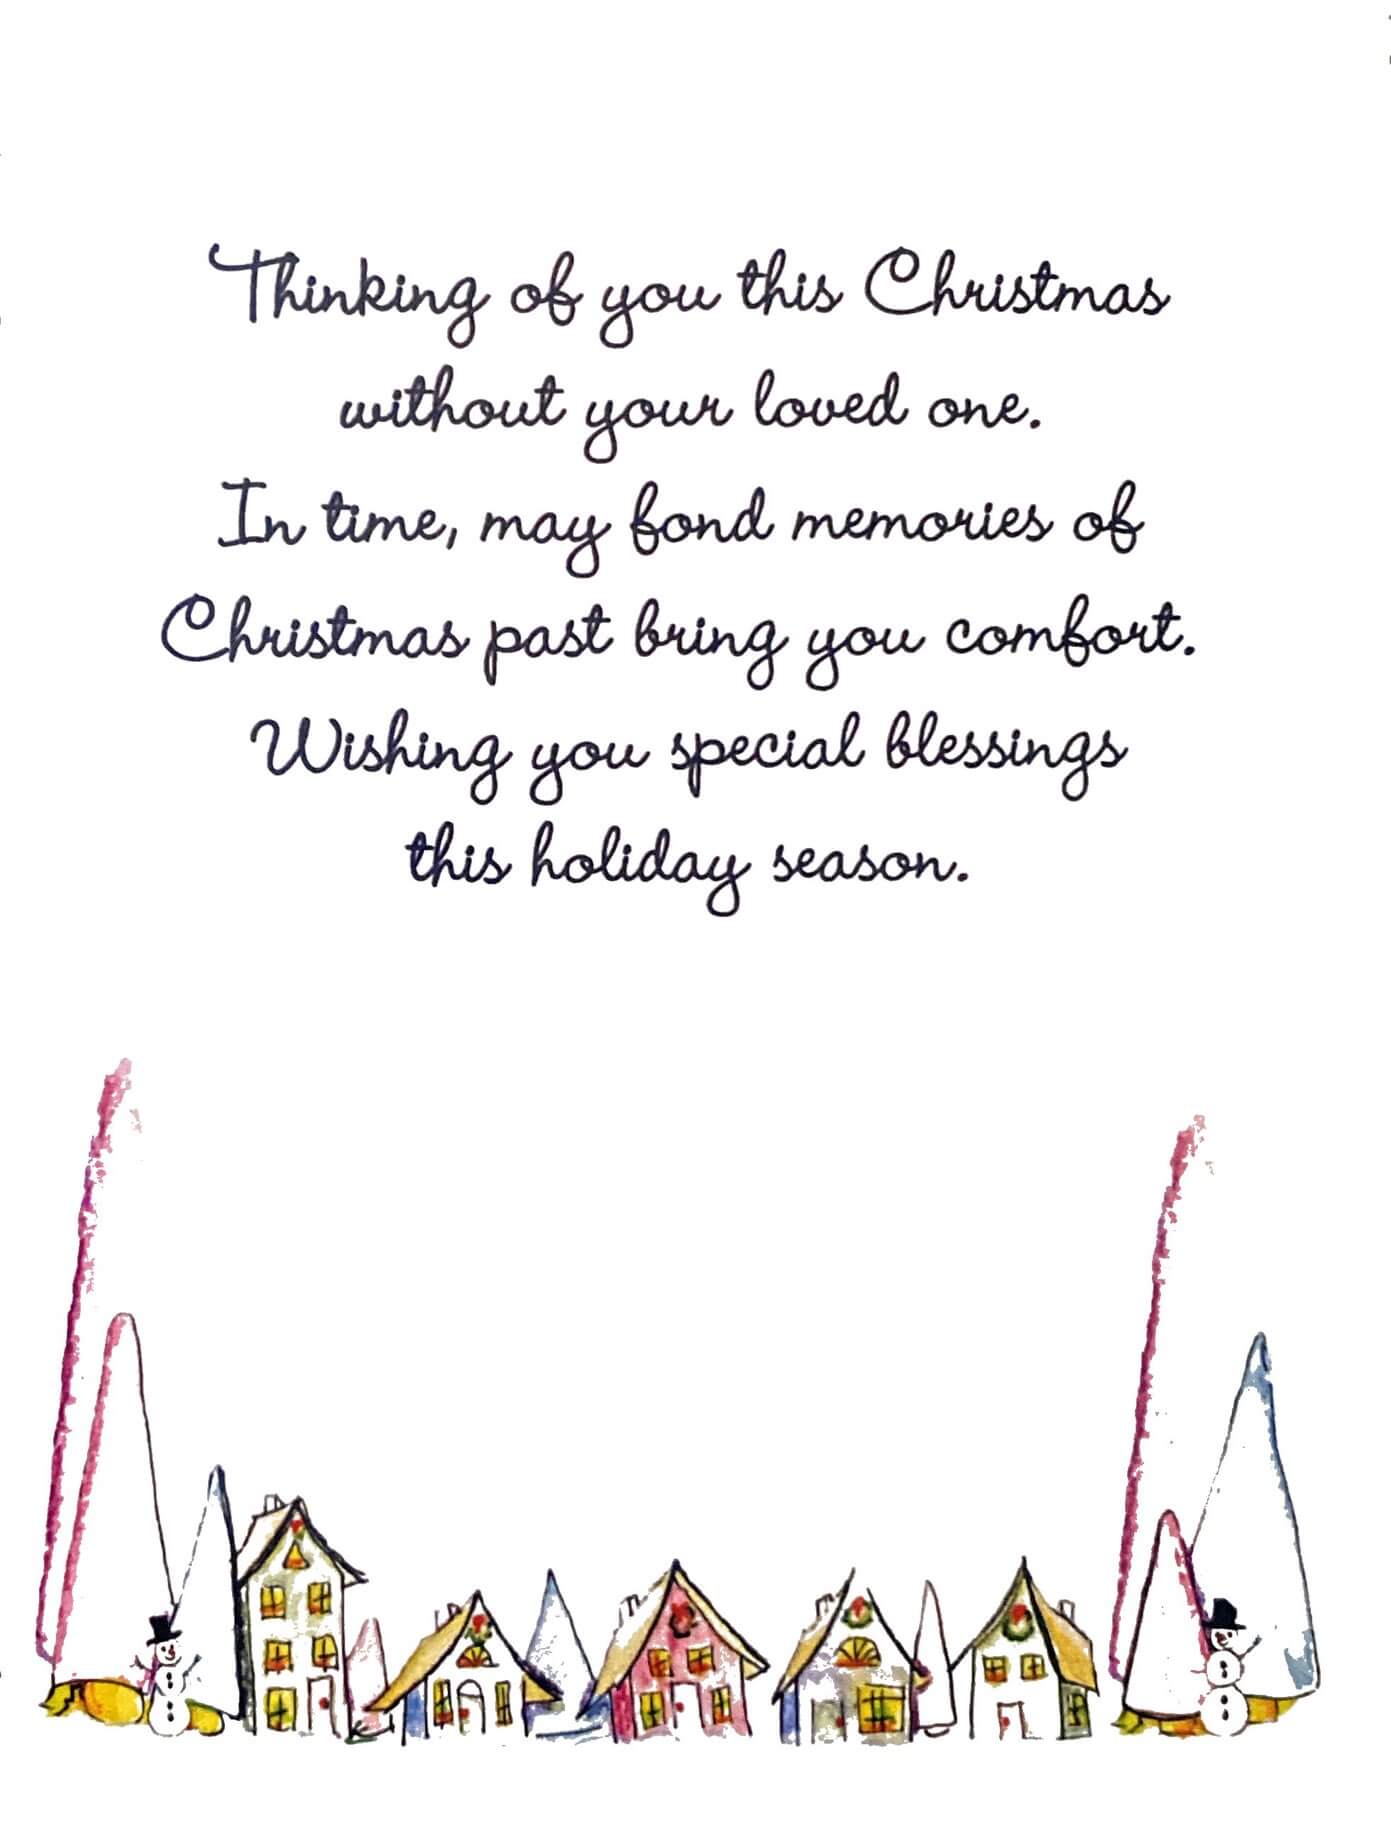 Thinking of you this Christmas
without your loved one.
In time, may fond memories of
Christmas past bring you comfort.
Wishing you special blessings
this holiday season.